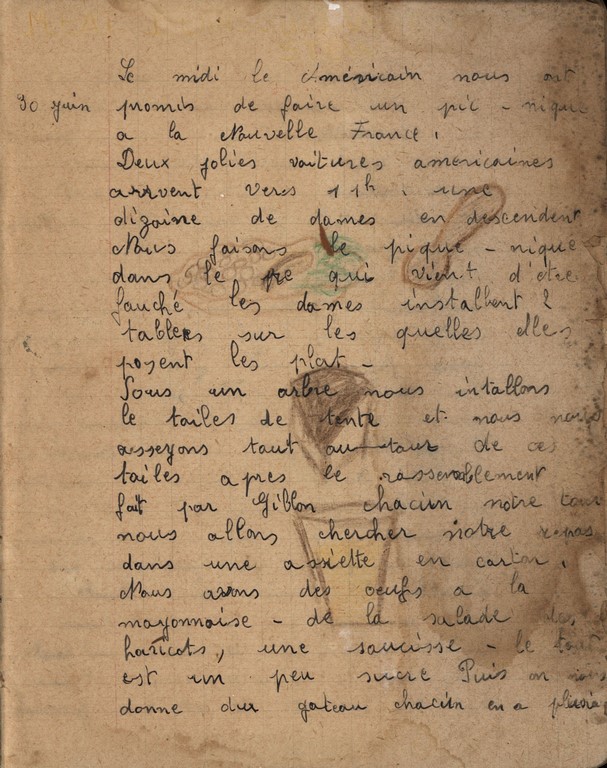 Le midi le Américain nous ont
30 juin promis de faire un pic - nique
a la Nouvelle France.
Deux jolies voitures americaines
arrvent vers 11h. une
dizaine de dames en descendent
Nous faisons le pique - nique
dans le pre qui vient d'être
fauché les dames installent 2
tables sur les quelles elles
posent les plat -
Sous un arbre nous intallons
le toiles de tente et nous nous
asseyons tout au tour de ces
toiles apres le rassemblement
fait par Giblon chacun notre tour
nous allons chercher notre repas
dans une assiette en carton.
Nous avons des oeufs a la
mayonnaise - de la salade des
haricots, une saucisse - le tout
est un peu sucre Puis on nous
donne dur gateau chacun en a